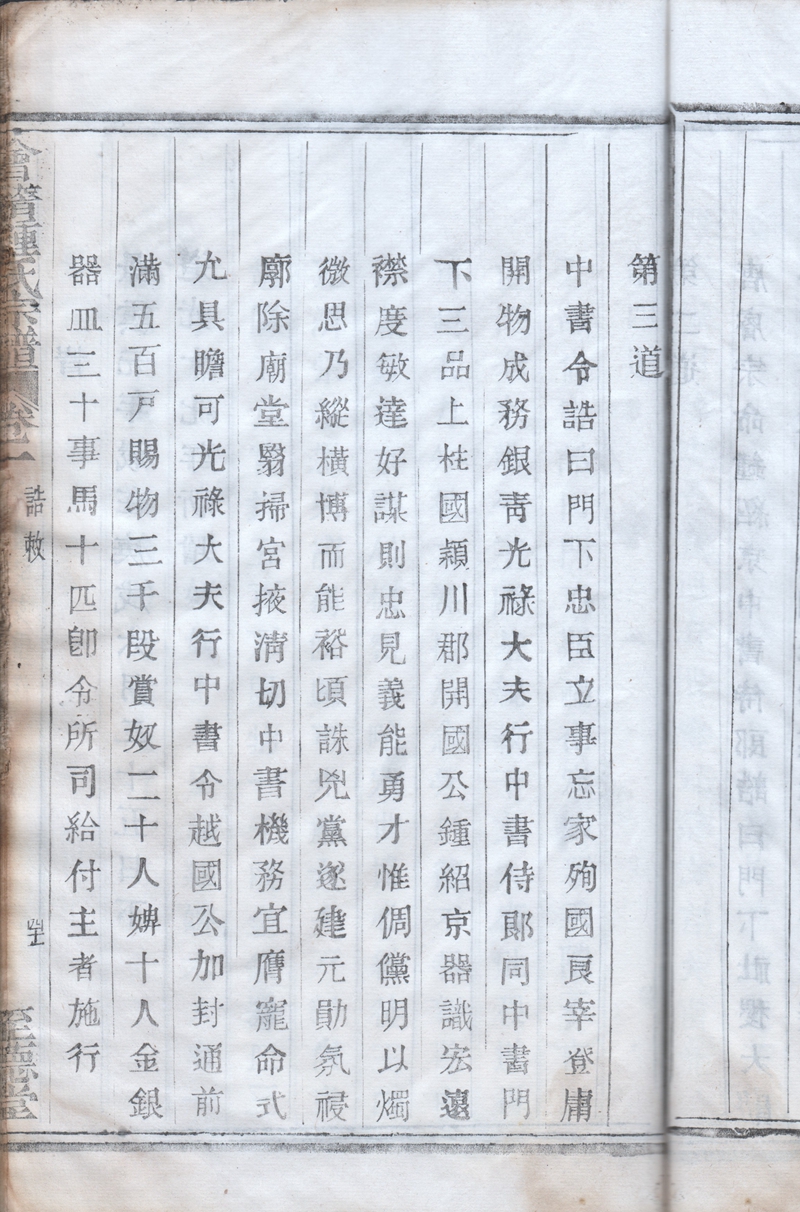 第三道
中書令誥曰門下忠臣立事忘家殉國良宰登庸
開物成務銀青光祿大夫行中書侍郎同中書門
下三品上柱國潁川郡開國公鍾紹京器識宏遠
襟度敏達好謀則忠見義能勇才惟倜儻明以燭
微思乃縱橫博而能裕頃誅兇黨遂建元勛氛祲
廓除廟堂翳掃宮掖清切中書機務宜膺寵命式
允具瞻可光祿大夫行中書令越國公加封通前
滿五百戸賜物三千段賞奴二十人婢十人金銀
器皿三十事馬十匹卽令所司給付主者施行
會稽鍾氏宗譜
卷一
誥敕
至德堂